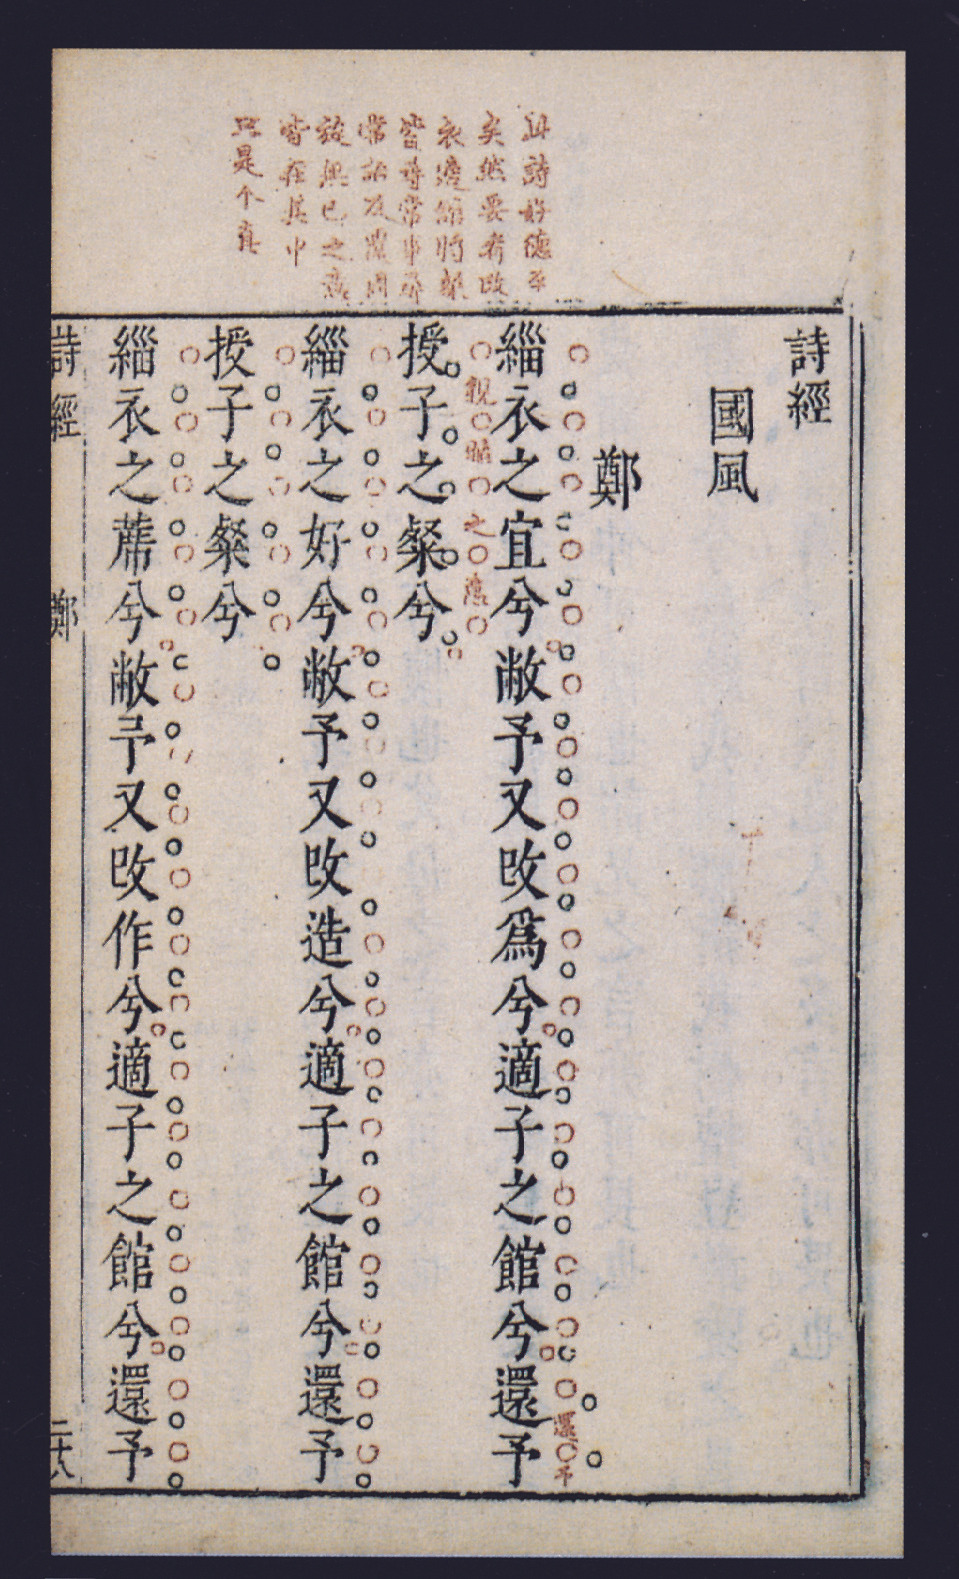 詩經
國風
鄭
緇衣之宜兮敝予又改爲兮適子之館兮還予
授子之粲兮
緇衣之好兮敝予又改造兮適子之館兮還予
授子之粲兮
緇衣之蓆兮敝予又改作兮適子之館兮還予
詩經 鄭 二十八
此詩好德至
矣然要看改
衣適館將粲
皆尋常事尋
常話反覆間
無已之意
皆在其中
只是个真
親之意
還